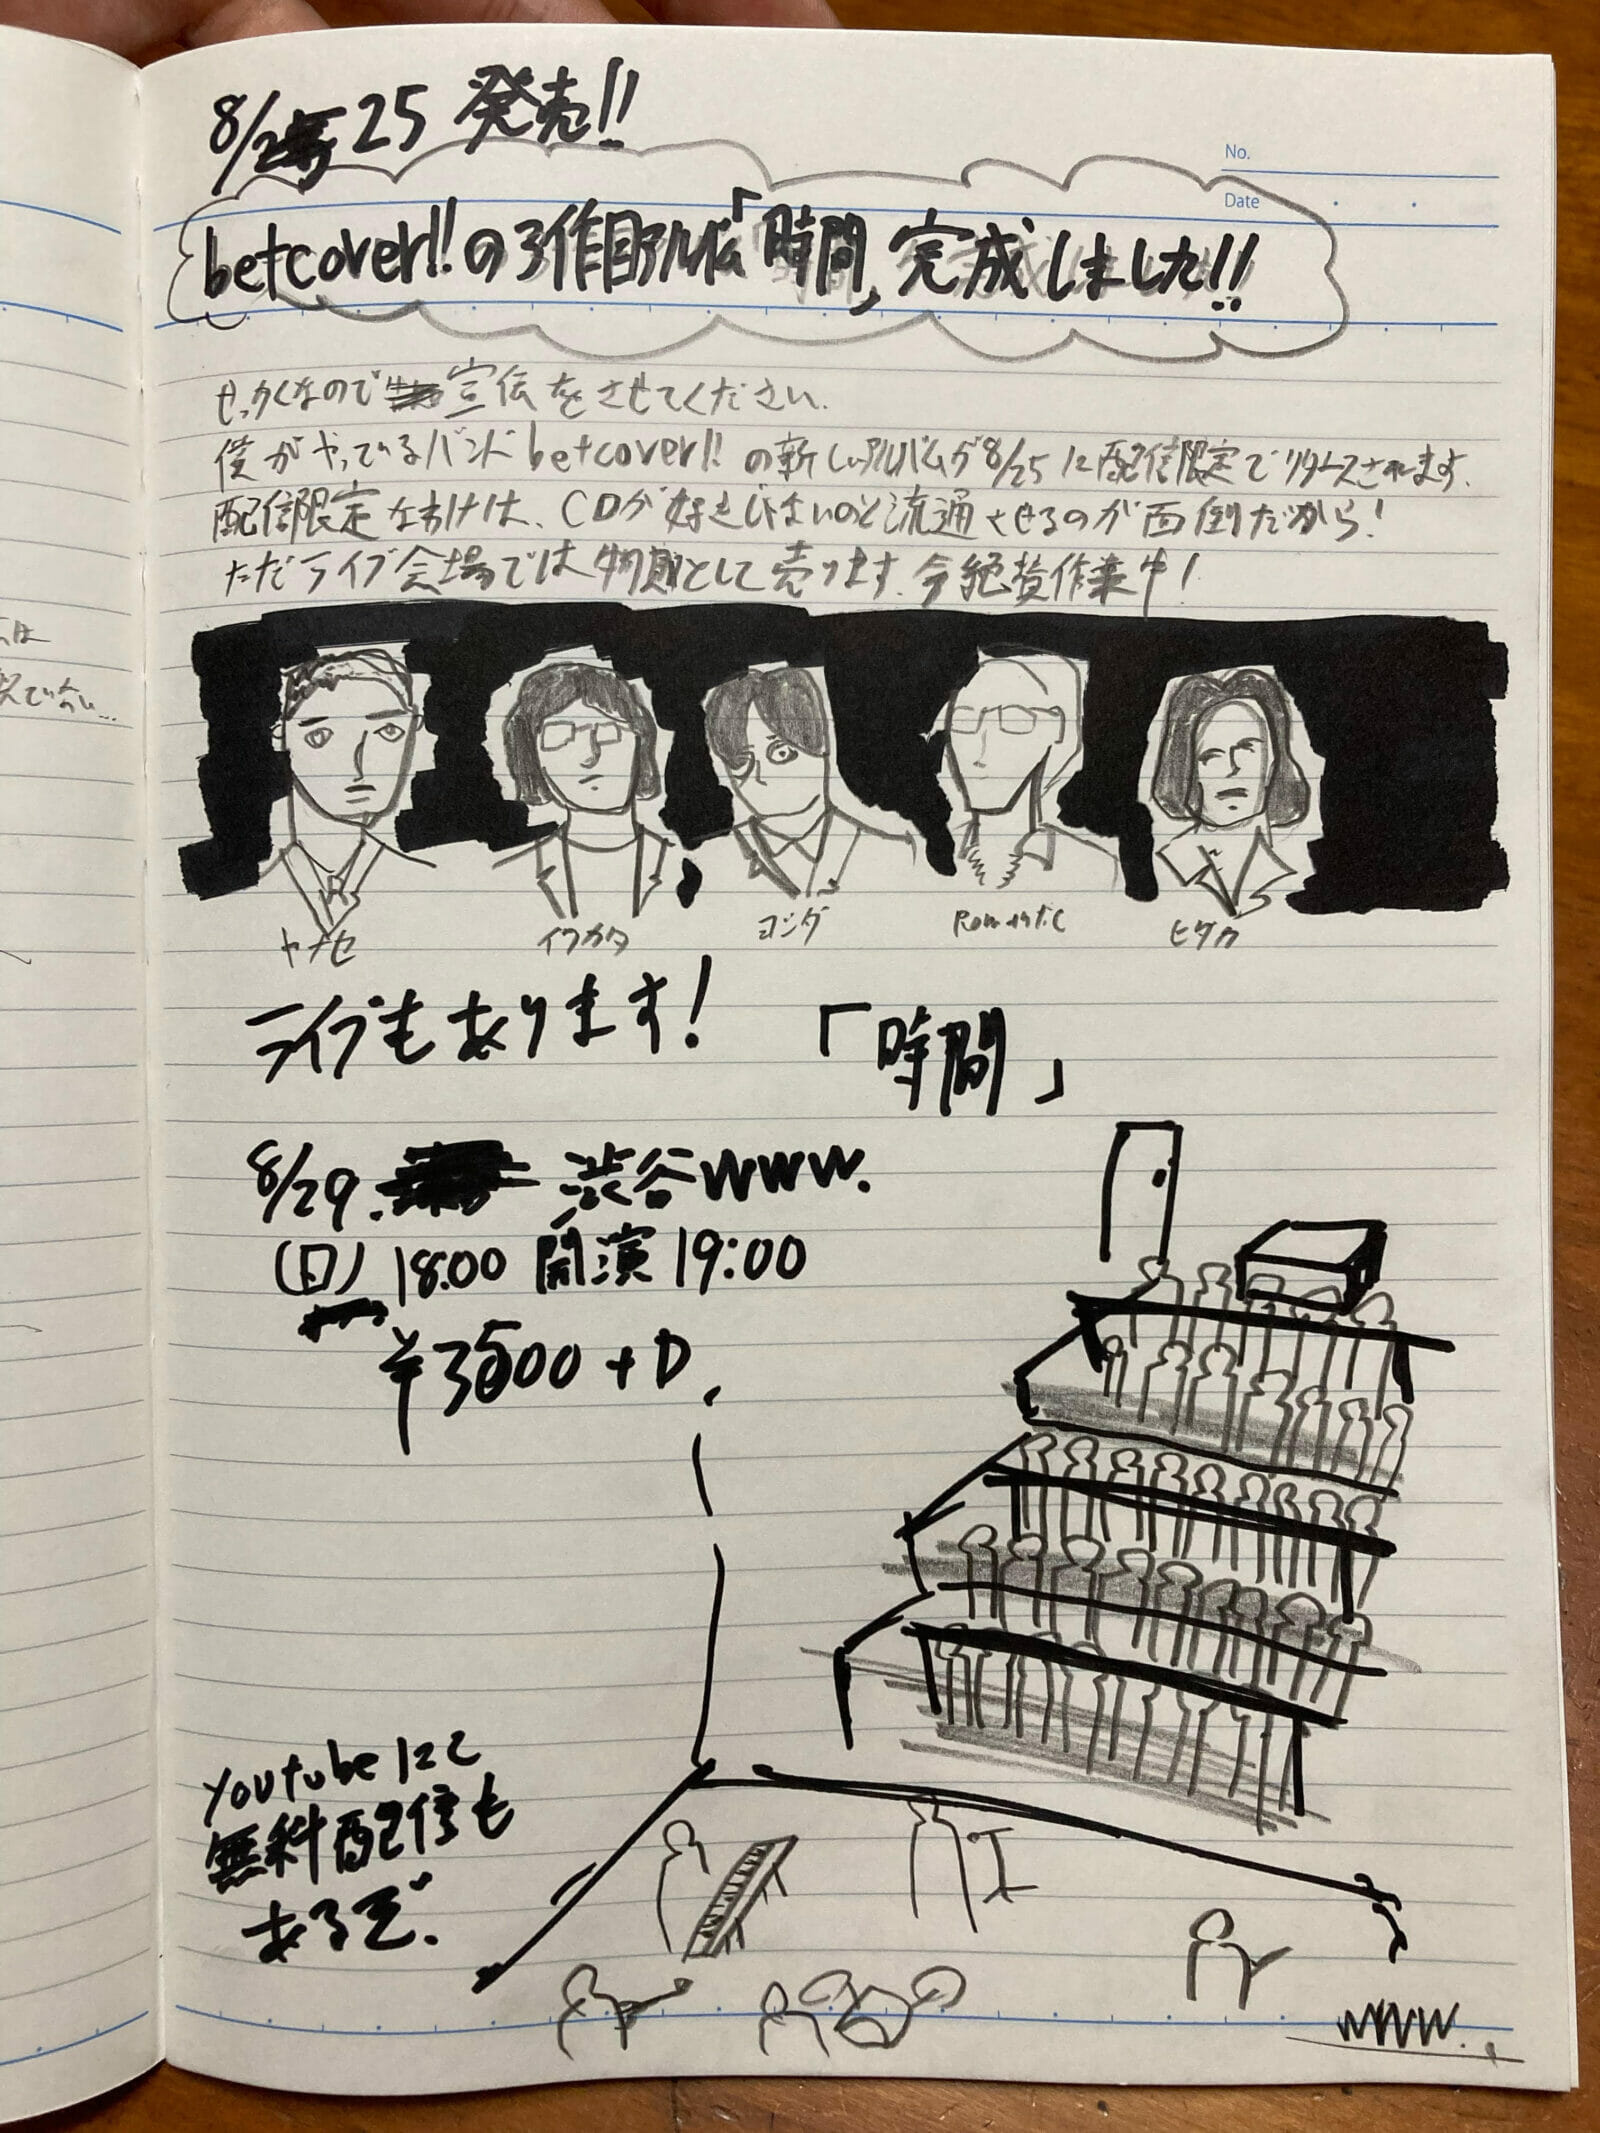 8/25 発売!!
No.
Date
betcover!!の3作目アルバム「時間」完成しました!!
せっかくなので宣伝をさせてください.
僕がやっているバンドbetcover!!の新しいアルバムが8/25に配信限定でリリースされます.
配信限定なわけは、CDが好きじゃないのと流通させるのが面倒だから!
ただライブ会場では物販として売ります.今絶賛作業中!
ヤナセ
イワカタ
ヨシダ
Romantic
ヒダカ
ライブもあります!
「時間」
8/29. 渋谷WWW.
(日) 18:00 開演 19:00
¥3500+D.
youtubeにて
無料配信も
あるぞ.
WWW.